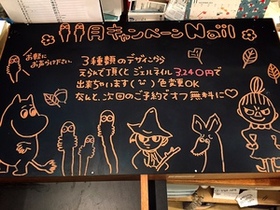 11月キャンペーンNail
お気軽に
お声がけください
3種類のデザインから
えらんで頂くと ジェルネイル 3240円で
出来ちゃいます 色変更OK
なんと、次回のご予約でオフ無料に♡